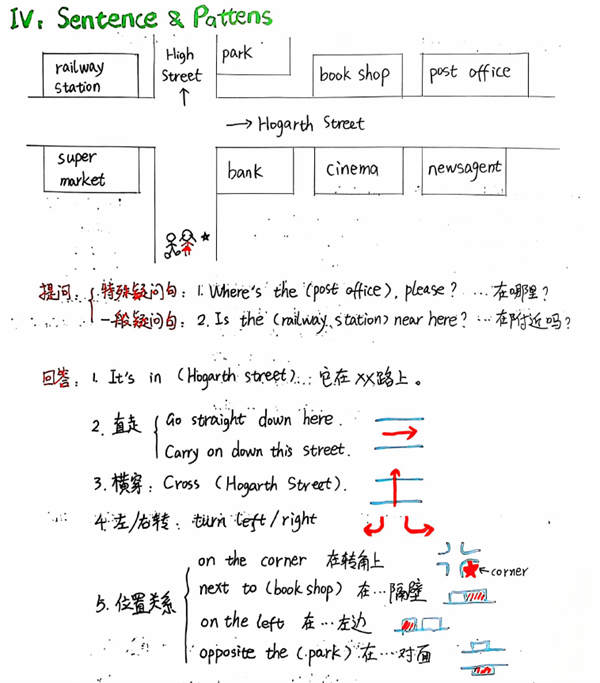 IV: Sentence & Pattens
railway station
High Street
park
book shop
post office
→ Hogarth Street
super market
bank
cinema
newsagent
提问: 特殊疑问句: 1. Where's the (post office), please? …在哪里?
一般疑问句: 2. Is the (railway station) near here? …在附近吗?
回答: 1. It's in (Hogarth street)…它在XX路上。
2. 直走 Go straight down here.
Carry on down this street.
3. 横穿: Cross (Hogarth Street).
4. 左/右转: turn left/right
5. 位置关系 on the corner 在转角上
←corner
next to (book shop) 在…隔壁
on the left 在…左边
opposite the (park) 在…对面